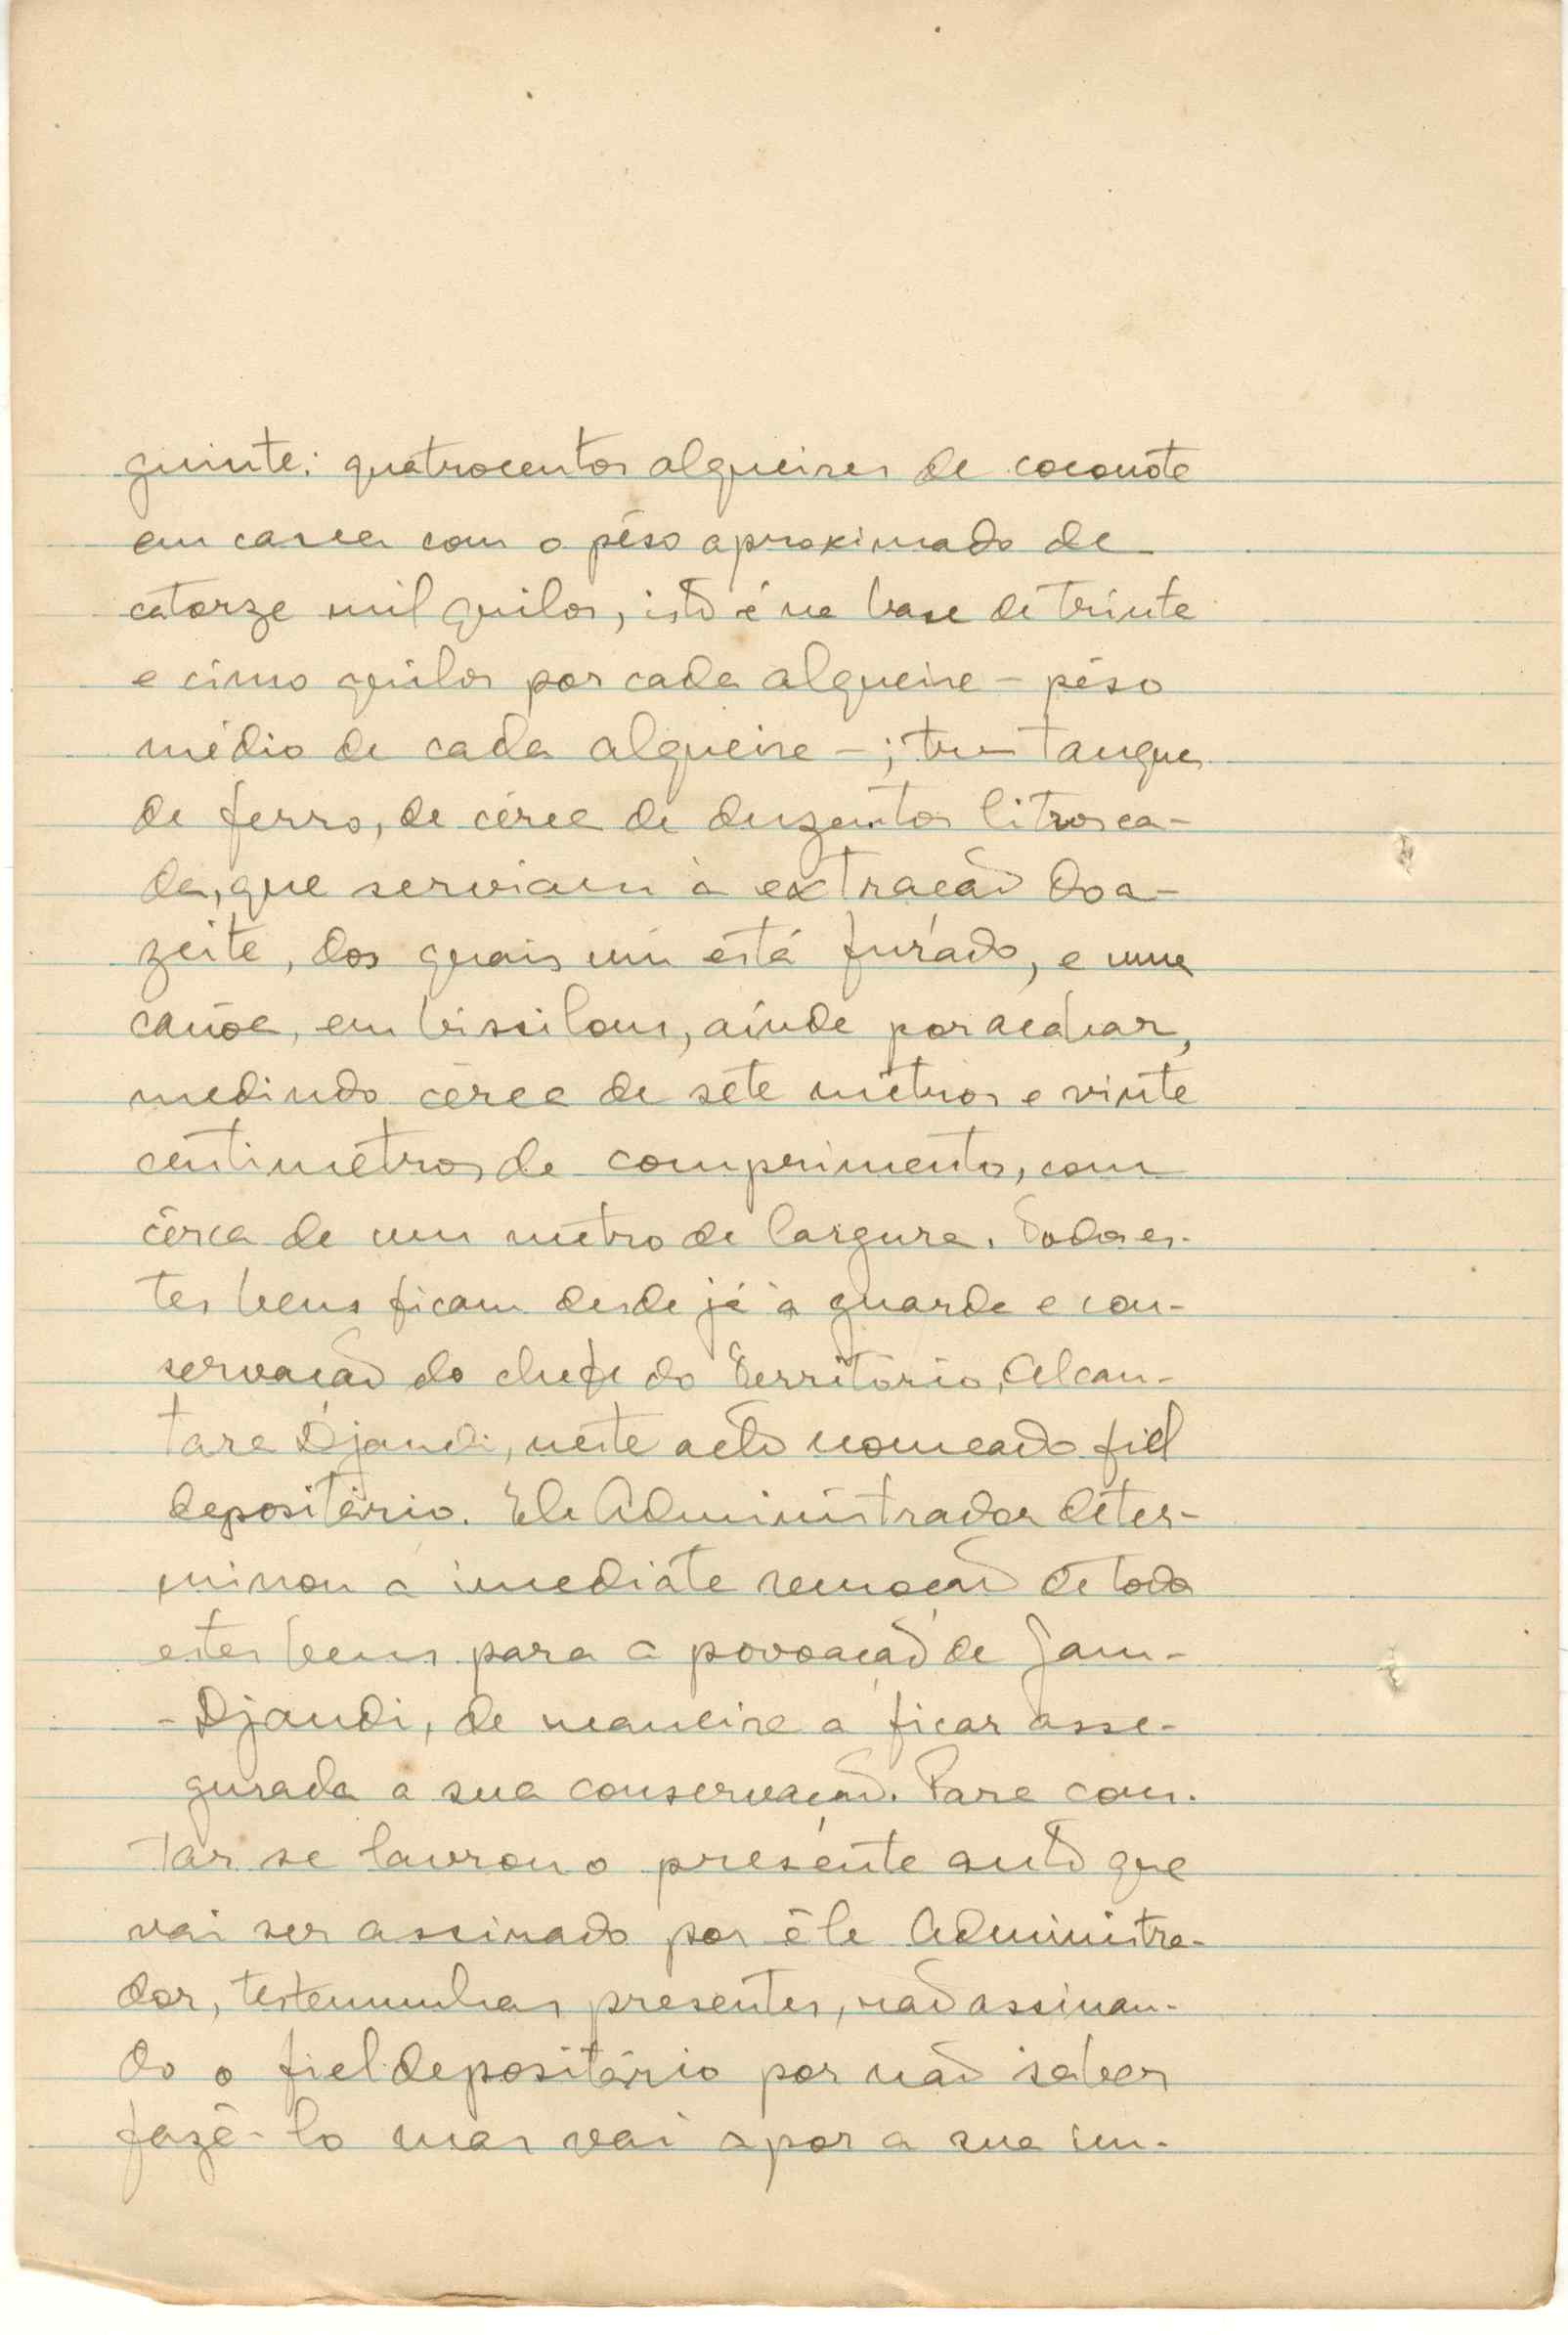 guinte: quatrocentos alqueires de coconote
em casca com o pêso aproximado de
catorze mil quilos, isto é na base de trinta
e cinco quilos por cada alqueire - pêso
médio de cada alqueire -; três tanques
de ferro, de cêrca de duzentos litros ca-
da, que serviam à extração do a-
zeite, dos quais um está furado, e uma
canôa, em bissilom, ainda por acabar,
medindo cêrca de sete metros e vinte
centimetros de comprimento, com
cêrca de um metro de largura. Todos es-
tes bens ficam desde já à guarda e con-
servação do chefe do Território, Alcan-
tara Djandi, neste acto nomeado fiel
depositário. Ele Administrador deter-
minou a imediata remoção de todos
estes bens para a povoação de Jam-
-Djandi, de maneira a ficar asse-
gurada a sua conservação. Para cons-
tar se lavrou o presente auto que
vai ser assinado por êle Administra-
dor, testemunhas presentes, não assinan-
do o fiel depositário por não saber
fazê-lo mas vai apor a sua im-